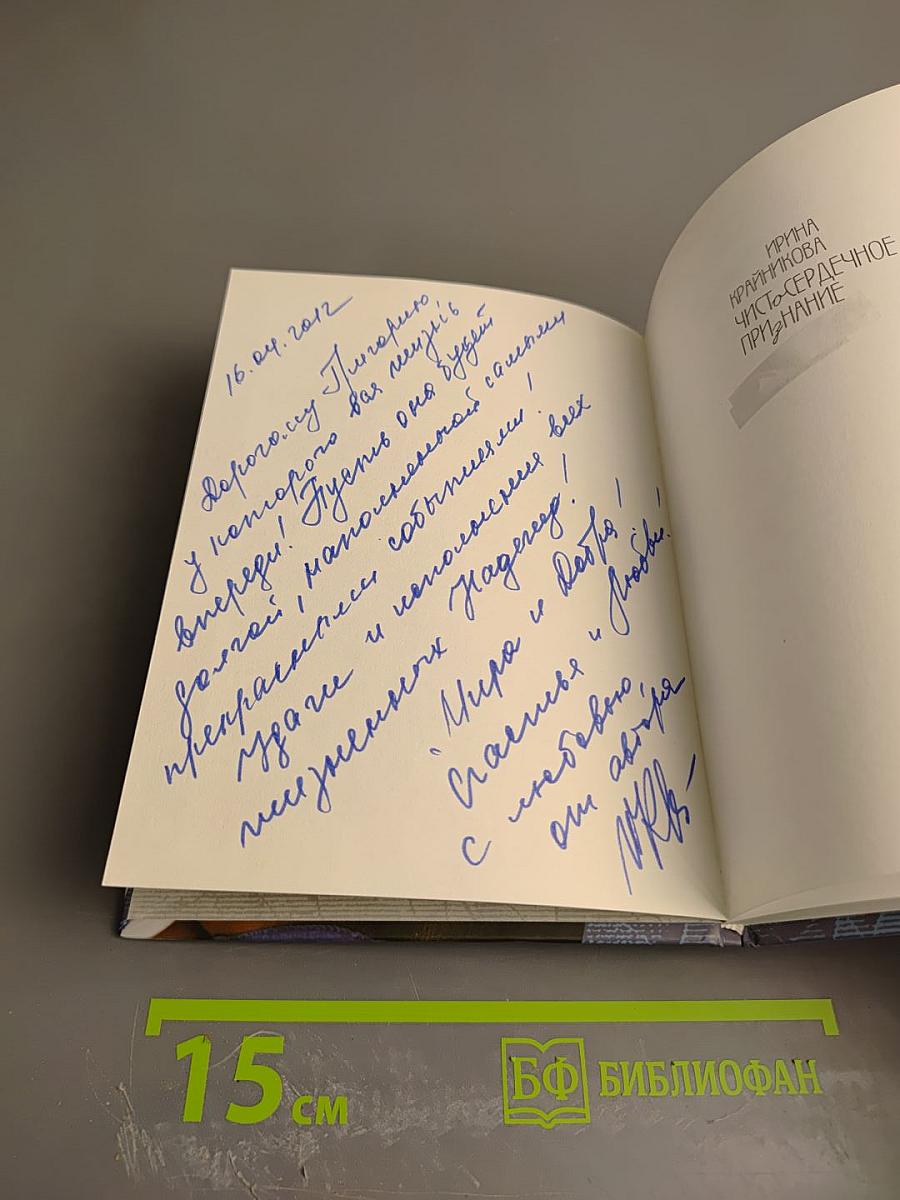 16.04.2012
Дорогому Григорию,
у которого вся жизнь
впереди! Пусть она будет
долгой, наполненной самыми
прекрасными событиями!
Удачи и исполнения всех
жизненных Надежд!
Мира и Добра!
Счастья и Любви!
С любовью,
от автора
ИРИНА
КРАЙНИКОВА
ЧИСТоСЕРДЕЧНОЕ
ПРИзНАНИЕ
15 см
БФ БИБЛИОФАН